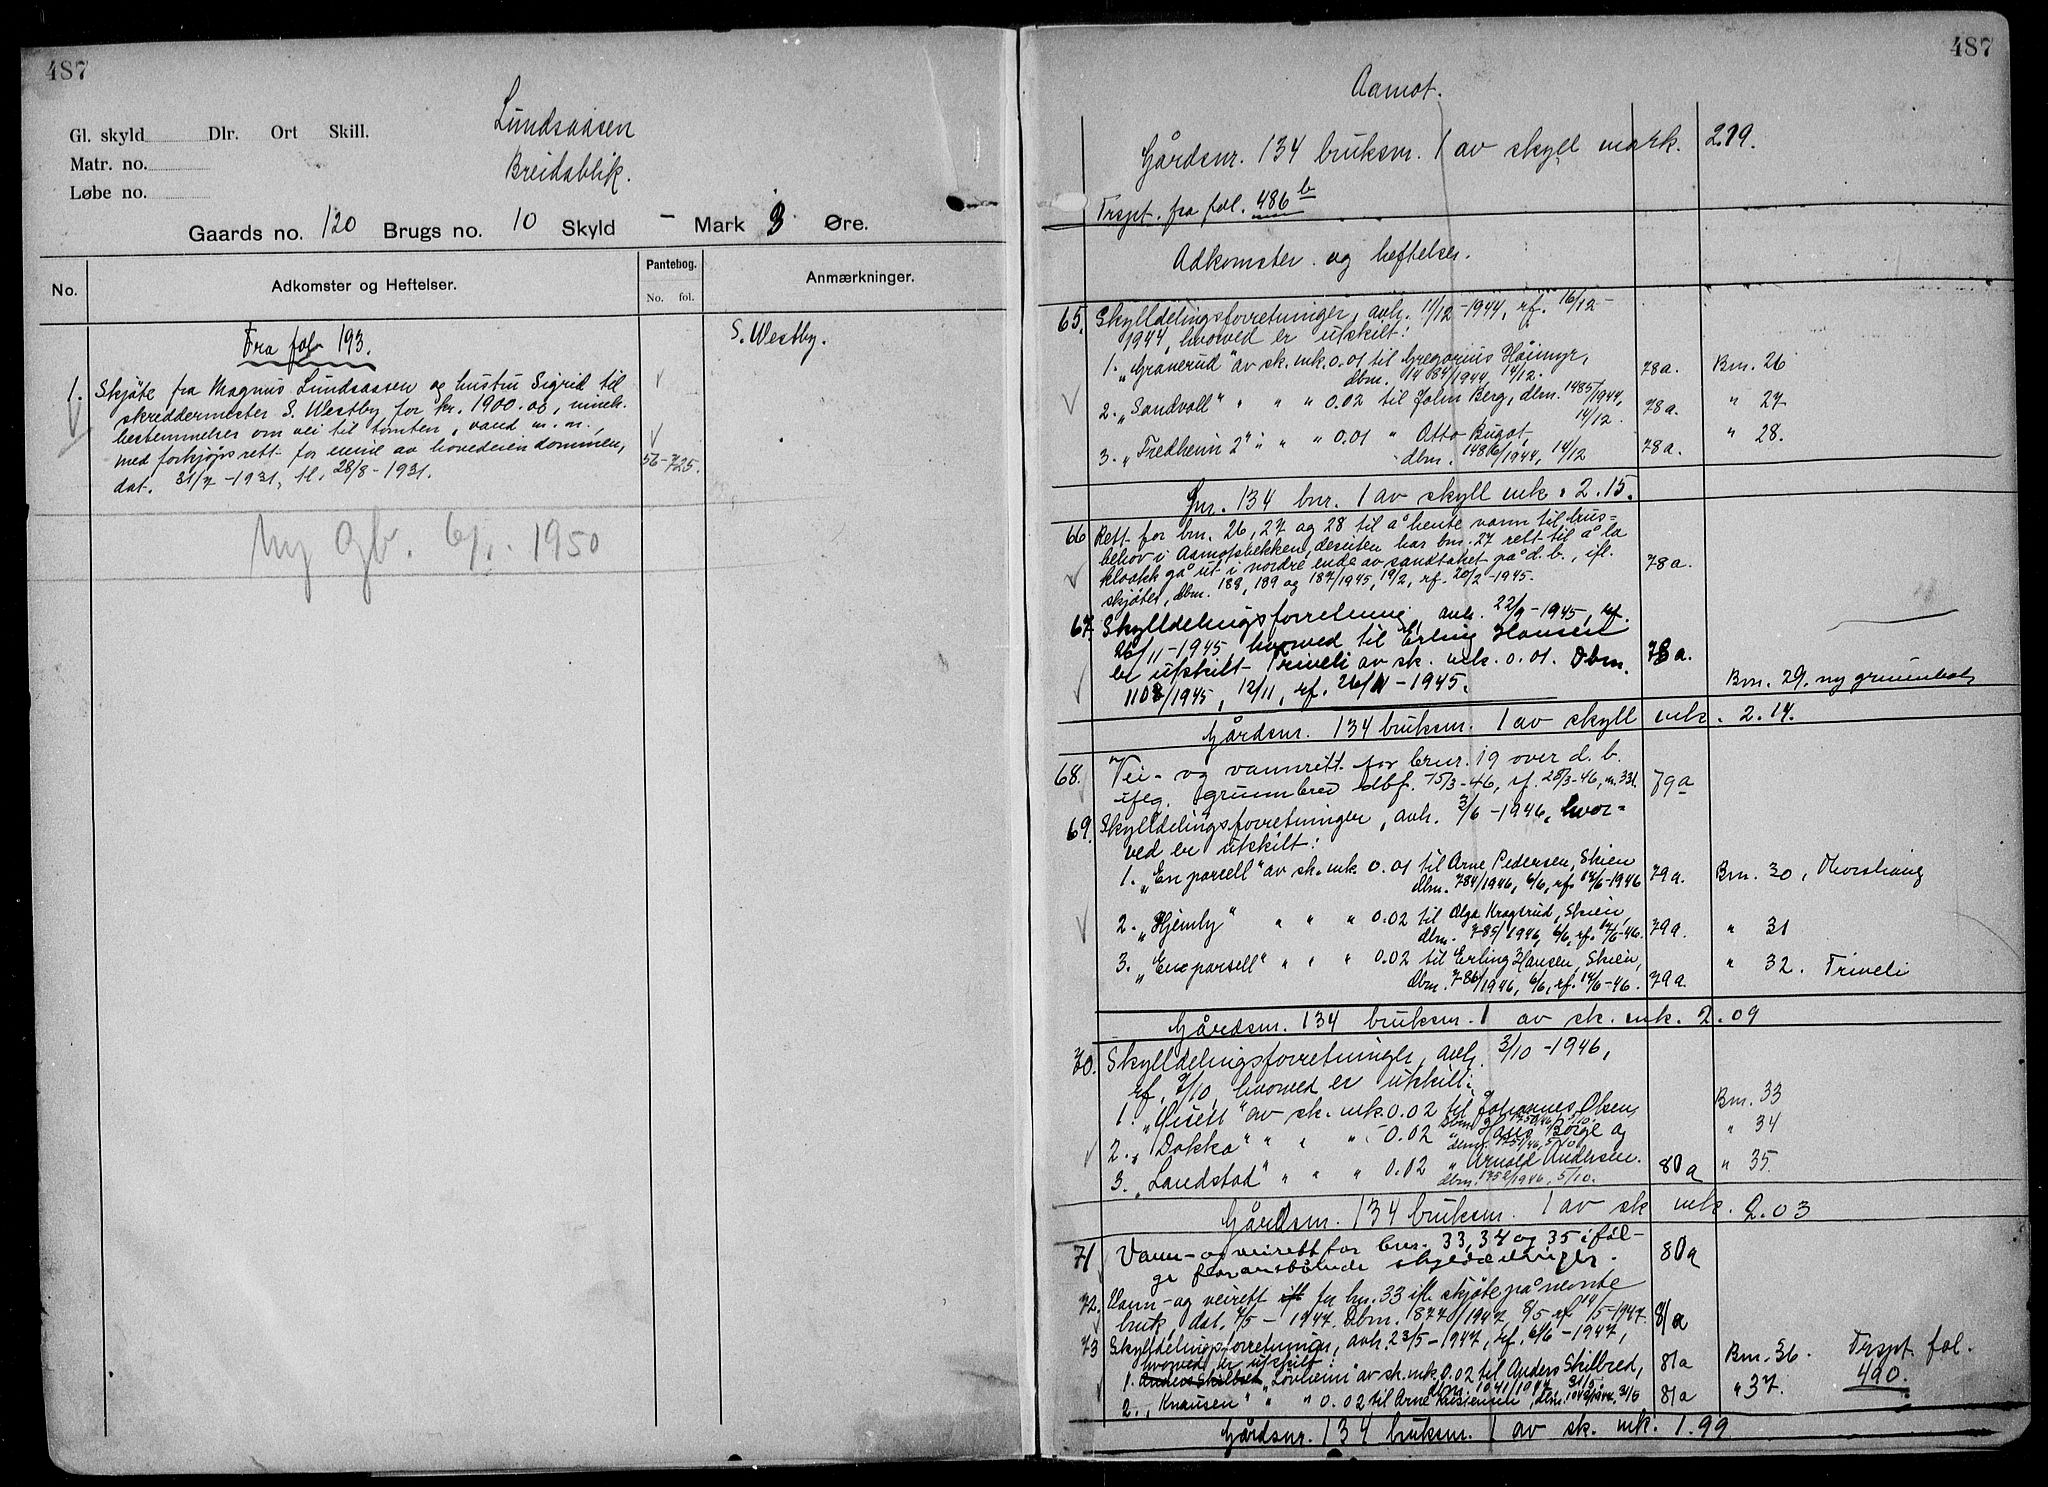 487
Lundsaasen
Gl. skyld Dlr. Ort Skill.
Matr. no. Breidablik.
Løbe no.
Gaards no. 120 Brugs no. 10 Skyld – Mark 3 Øre.
No. Adkomster og Heftelser. Pantebog. No. fol. Anmærkninger.
Fra fol 193. S. Westby.
1. Skjøte fra Magnus Lundsaasen og hustru Sigrid til
skreddermester S. Westby for kr. 1900.00, inneh.
bestemmelser om vei til tomten, vand m. m.,
med forkjøpsrett for eiene av hovedeiendommen,
dat. 31/7 - 1931, tl. 28/8 - 1931. 56-725.
Ny Gb. 6/1. 1950
487
Aamot.
Gårdsnr. 134 bruksnr. 1 av skyll mark. 2.19.
Trspt. fra fol. 486 b
Adkomster og heftelser.
65. Skylldelingsforretninger, avh. 11/12-1944, rf. 16/12-
1944, hvorved er utskilt:
1. „Granerud" av sk. mk. 0.01 til Gregorius Håimyr, 78a. Bnr. 26
dbnr. 1484/1944, 14/12.
2. „Sandvoll" " " " 0.02 til John Berg, dbnr. 1485/1944, 14/12. 78a. " 27
3. „Fredheim 2" " " " 0.01 " Otto Bugot, 78a. " 28.
dbnr. 1486/1944, 14/12
Gnr. 134 bnr. 1 av skyll mk. 2.15.
66 Rett for bnr. 26, 27 og 28 til å hente vann til hus=
behov i Aamotsbekken, desuten har bnr. 27 rett til å la
kloakk gå ut i nordre ende av sandtaket på d. b., ifl. 78a.
skjøter, dbnr. 188, 189 og 187/1945, 19/2, rf. 20/2-1945.
67. Skylldelingsforretning, avh. 22/9-1945, rf.
26/11-1945 hvorved til Erling Hansen
er utskilt Triveli av sk. mk. 0.01. Dbnr. 78a.
1108/1945, 12/11, rf. 26/11-1945. Bnr. 29, ny grunnbok
Gårdsnr. 134 bruksnr. 1 av skyll mk. 2.14.
68. Vei- og vannrett for bnr. 19 over d. b.
ifølg. grunnbrev dbf. 15/3-46, rf. 28/3-46, nr. 331. 79a
69. Skylldelingsforretninger, avh. 3/6-1946, hvor=
ved er utskilt:
1. „En parsell" av sk. mk. 0.01 til Arne Pedersen, Skien 79a. Bnr. 30,
dbnr. 784/1946, 6/6, rf. 14/6-1946
2. „Hjemly" " " " 0.02 til Olga Kragsrud, Skien, 79a. " 31
dbnr. 785/1946, 6/6, rf. 14/6-46.
3. „En parsell" " " " 0.02 til Erling Hansen, Skien, " 32. Triveli
dbnr. 786/1946, 6/6, rf. 14/6-46. 79a.
Gårdsnr. 134 bruksnr. 1 av sk. mk. 2.09
70. Skylldelingsforretninger, avh. 3/10-1946,
rf. 7/10, hvorved er utskilt:
1. av sk. mk. 0.02 til Johannes Olsen, Bnr. 33
2. „Dokka" " " " 0.02 " Hans Børge og " 34
3. „Landstad" " " " 0.02 " Arnold Andersen. 80a " 35
dbnr. 1752/1946, 5/10.
Gårdsnr. 134 bruksnr. 1 av sk mk. 2.03
71. Vann- og veirett for bnr. 33, 34 og 35 iføl- 80a
ge foranstående skylddelinger.
72. Vann- og veirett for bnr. 33 ifl. skjøte på nevnte
bruk, dat. 7/5 - 1947. Dbnr. 18770/1947, 8/5 rf 14/5-1947. 81a
73 Skylldelingsforretninger, avh. 23/5-1947, rf. 6/6-1947,
hvorved er utskilt:
1. Anders Skilbred „Lovheim" av sk. mk. 0.02 til Anders Skilbred, 81a Bnr. 36 Trspt. fol. 490.
dbnr. 1041/1947 31/5.
2. „Knausen" " " 0.02 til Arne Kristensen, dbnr. 1042/1947, 31/5 81a " 37.
Gårdsnr. 134 bruksnr. 1 av sk. mk. 1.99